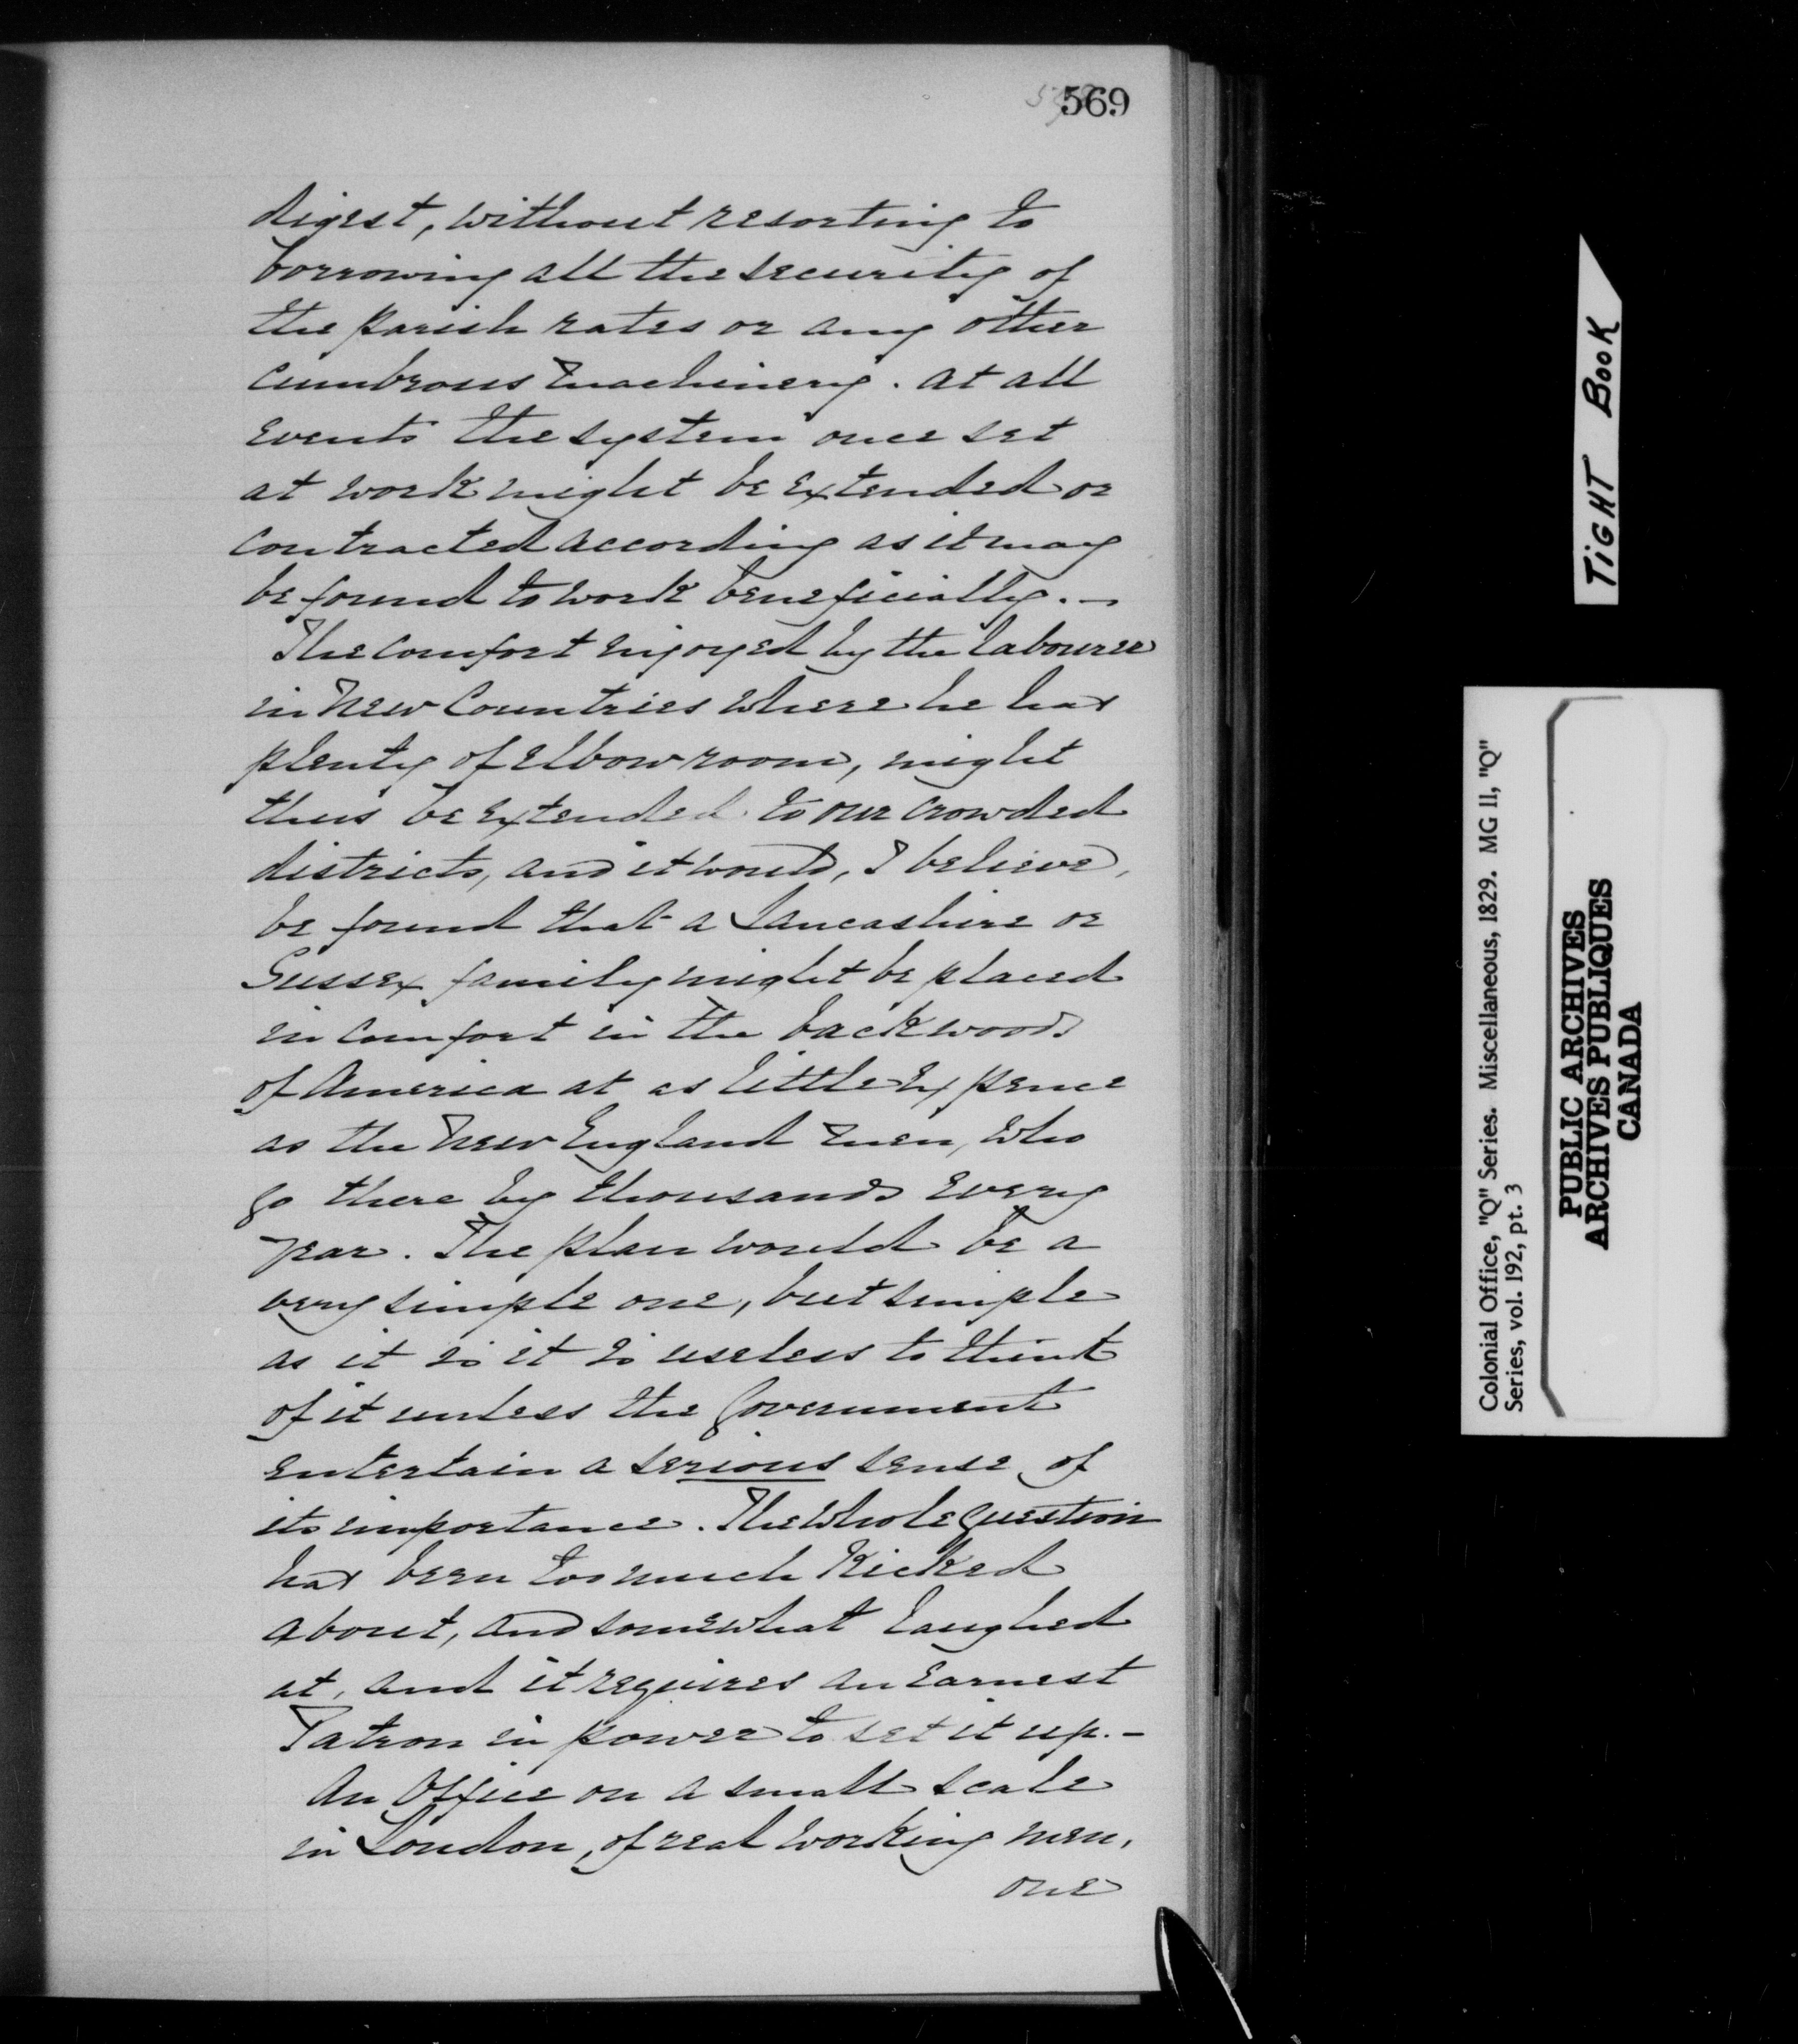 569
digest, without resorting to
borrowing all the security of
the parish rates or any other
cumbrous machinery. at all
events the system once set
at work might be extended or
contracted according as it may
be found to work beneficially. —
The comfort enjoyed by the labourer
in new Countries where he has
plenty of elbow room, might
thus be extended to our crowded
districts, and it would, I believe,
be found that a Lancashire or
Sussex family might be placed
in comfort in the backwoods
of America at as little expence
as the New England men, who
go there by thousands every
year. The plan would be a
very simple one, but simple
as it is it is useless to think
of it unless the Government
entertain a serious sense of
its importance. The whole question
has been too much kicked
about, and somewhat laughed
at, and it requires an earnest
Patron in power to set it up. —
An Office on a small scale
in London, of real working men,
one
TiGHT BOOK
Colonial Office, "Q" Series. Miscellaneous, 1829. MG 11, "Q"
Series, vol. 192, pt. 3
PUBLIC ARCHIVES
ARCHIVES PUBLIQUES
CANADA